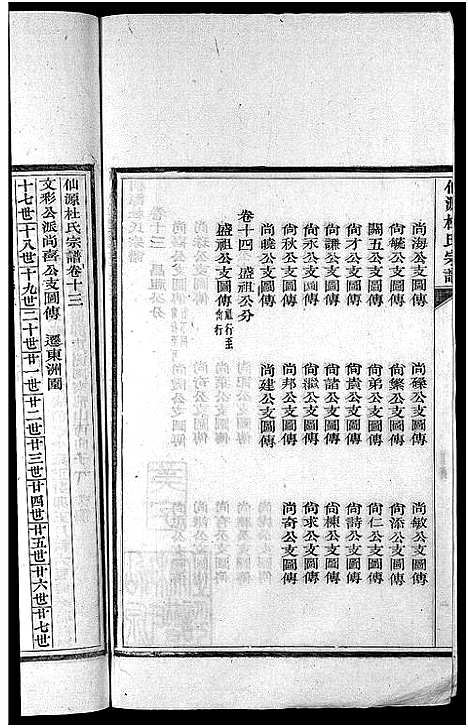 仙源杜氏宗譜
尚海公支圖傳　尚孫公支圖傳　尚敏公支圖傳
尚毓公支圖傳　尚繁公支圖傳　尚添公支圖傳
關五公支圖傳　尚弟公支圖傳　尚仁公支圖傳
尚才公支圖傳　尚袁公支圖傳　尚詩公支圖傳
尚謙公支圖傳　尚諮公支圖傳　尚棟公支圖傳
尚永公支圖傳　尚滋公支圖傳　尚求公支圖傳
尚秋公支圖傳　尚邦公支圖傳　尚奇公支圖傳
尚曉公支圖傳　尚建公支圖傳
卷十四　盛祖公分
盛祖公支圖傳
仙源杜氏宗譜卷十三
文彩公派尚齋公支圖傳　遷東洲園
十七世十八世十九世二十世廿一世廿二世廿三世廿四世廿五世廿六世廿七世